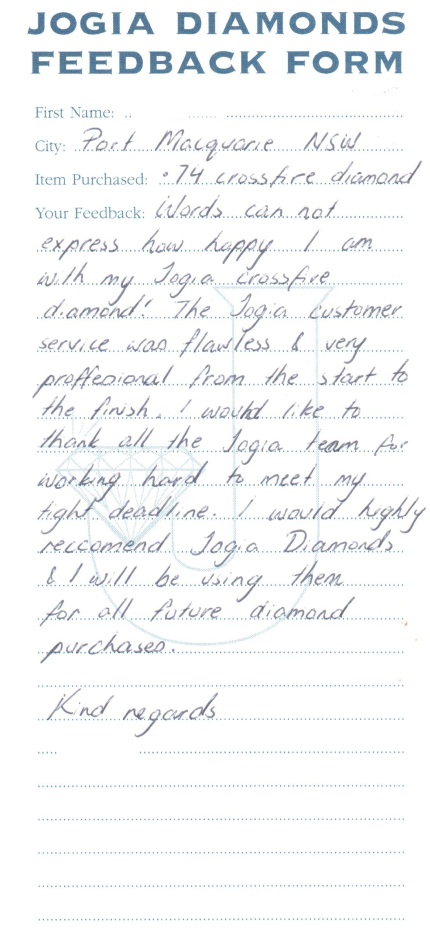 JOGIA DIAMONDS
FEEDBACK FORM
First Name:
City: Port Macquarie NSW
Item Purchased: .74 crossfire diamond
Your Feedback: Words can not
express how happy I am
with my Jogia crossfire
diamond! The Jogia customer
service was flawless & very
proffesional from the start to
the finish. I would like to
thank all the Jogia team for
working hard to meet my
tight deadline. I would highly
reccomend Jogia Diamonds
& I will be using them
for all future diamond
purchases.
Kind regards